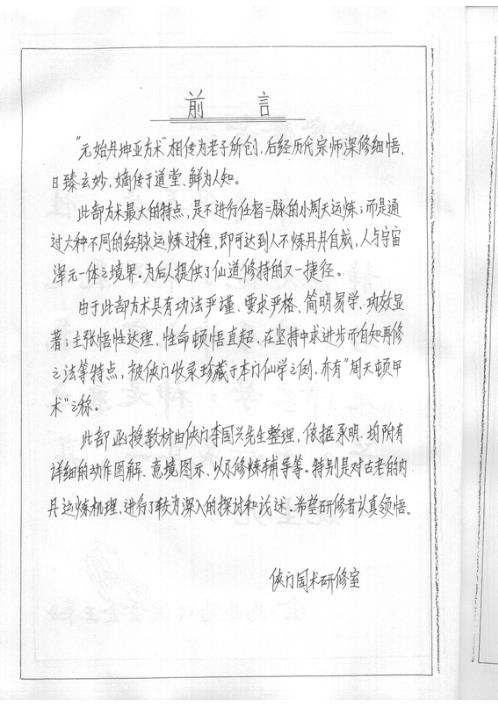 前言
“元始丹坤亚方术”相传为老子所创,后经历代宗师深修细悟,
日臻玄妙,嫡传于道堂、鲜为人知。
此部方术最大的特点,是不进行任督二脉的小周天运炼;而是通
过六种不同的经脉运炼过程,即可达到人不炼丹丹自成,人与宇宙
浑元一体之境界。为后人提供了仙道修持的又一捷径。
由于此部方术具有功法严谨、要求严格、简明易学、功效显
著;主张悟性达理,性命顿悟直超,在坚持中求进步而自知再修
之法等特点,被侠门收录珍藏于本门仙学之例,亦有“周天顿甲
术”之称。
此部函授教材由侠门李国兴先生整理,依据来明、均附有
详细的动作图解、意境图示、以及修炼辅导等。特别是对古老的内
丹边炼机理,进行了较为深入的探讨和论述。希望研修者认真领悟。
侠门国术研修室